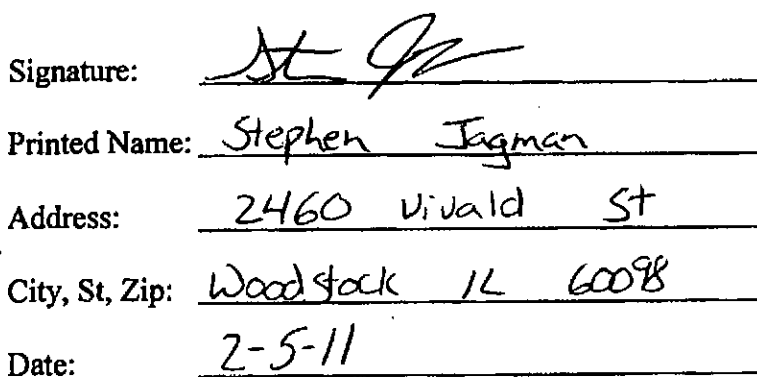 Signature: St J
Printed Name: Stephen Jagman
Address: 2460 Vivald St
City, St, Zip: Woodstock IL 60098
Date: 2-5-11